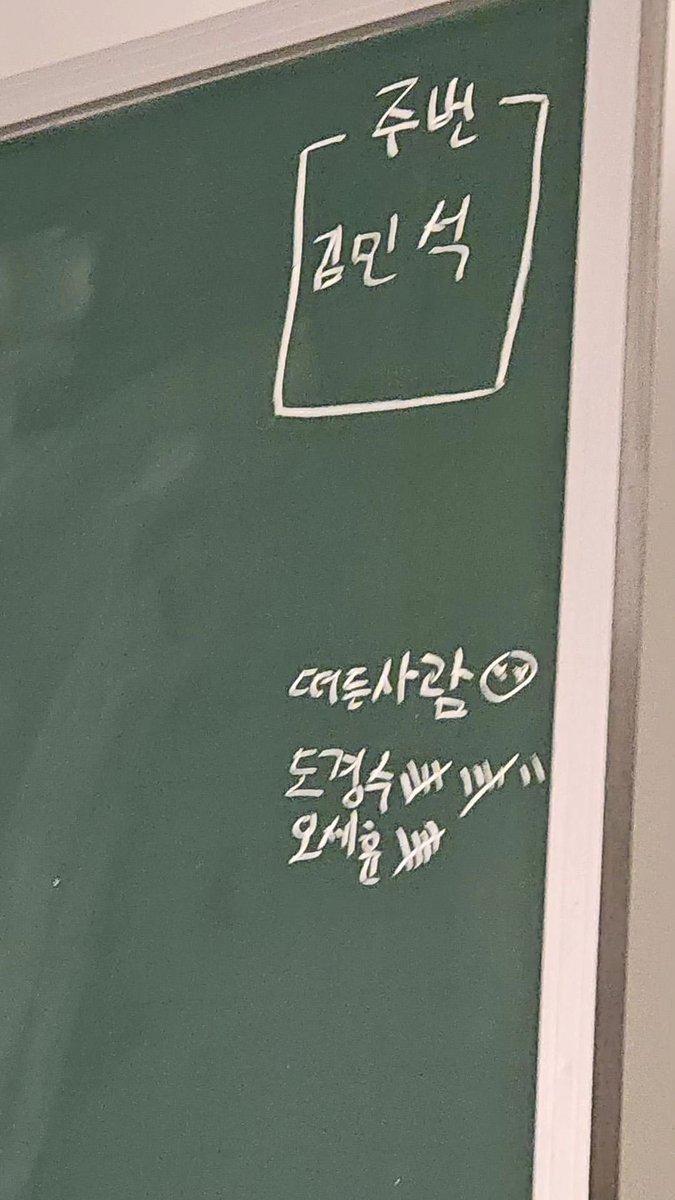 주번
김민석
떠든사람
도경수
오세훈